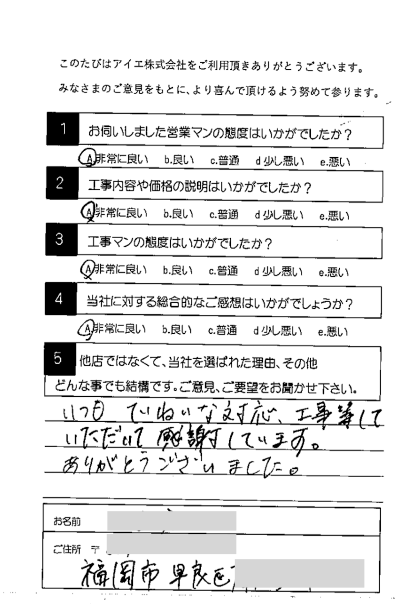 このたびはアイエ株式会社をご利用頂きありがとうございます。
みなさまのご意見をもとに、より喜んで頂けるよう努めて参ります。
1 お伺いしました営業マンの態度はいかがでしたか？
A非常に良い b.良い c.普通 d少し悪い e.悪い
2 工事内容や価格の説明はいかがでしたか？
A非常に良い b.良い c.普通 d少し悪い e.悪い
3 工事マンの態度はいかがでしたか？
A非常に良い b.良い c.普通 d少し悪い e.悪い
4 当社に対する総合的なご感想はいかがでしょうか？
A非常に良い b.良い c.普通 d少し悪い e.悪い
5 他店ではなくて、当社を選ばれた理由、その他
どんな事でも結構です。ご意見、ご要望をお聞かせ下さい。
いつも ていねいな対応、工事等して
いただいて感謝しています。
ありがとうございました。
お名前
ご住所 〒
福岡市 早良区